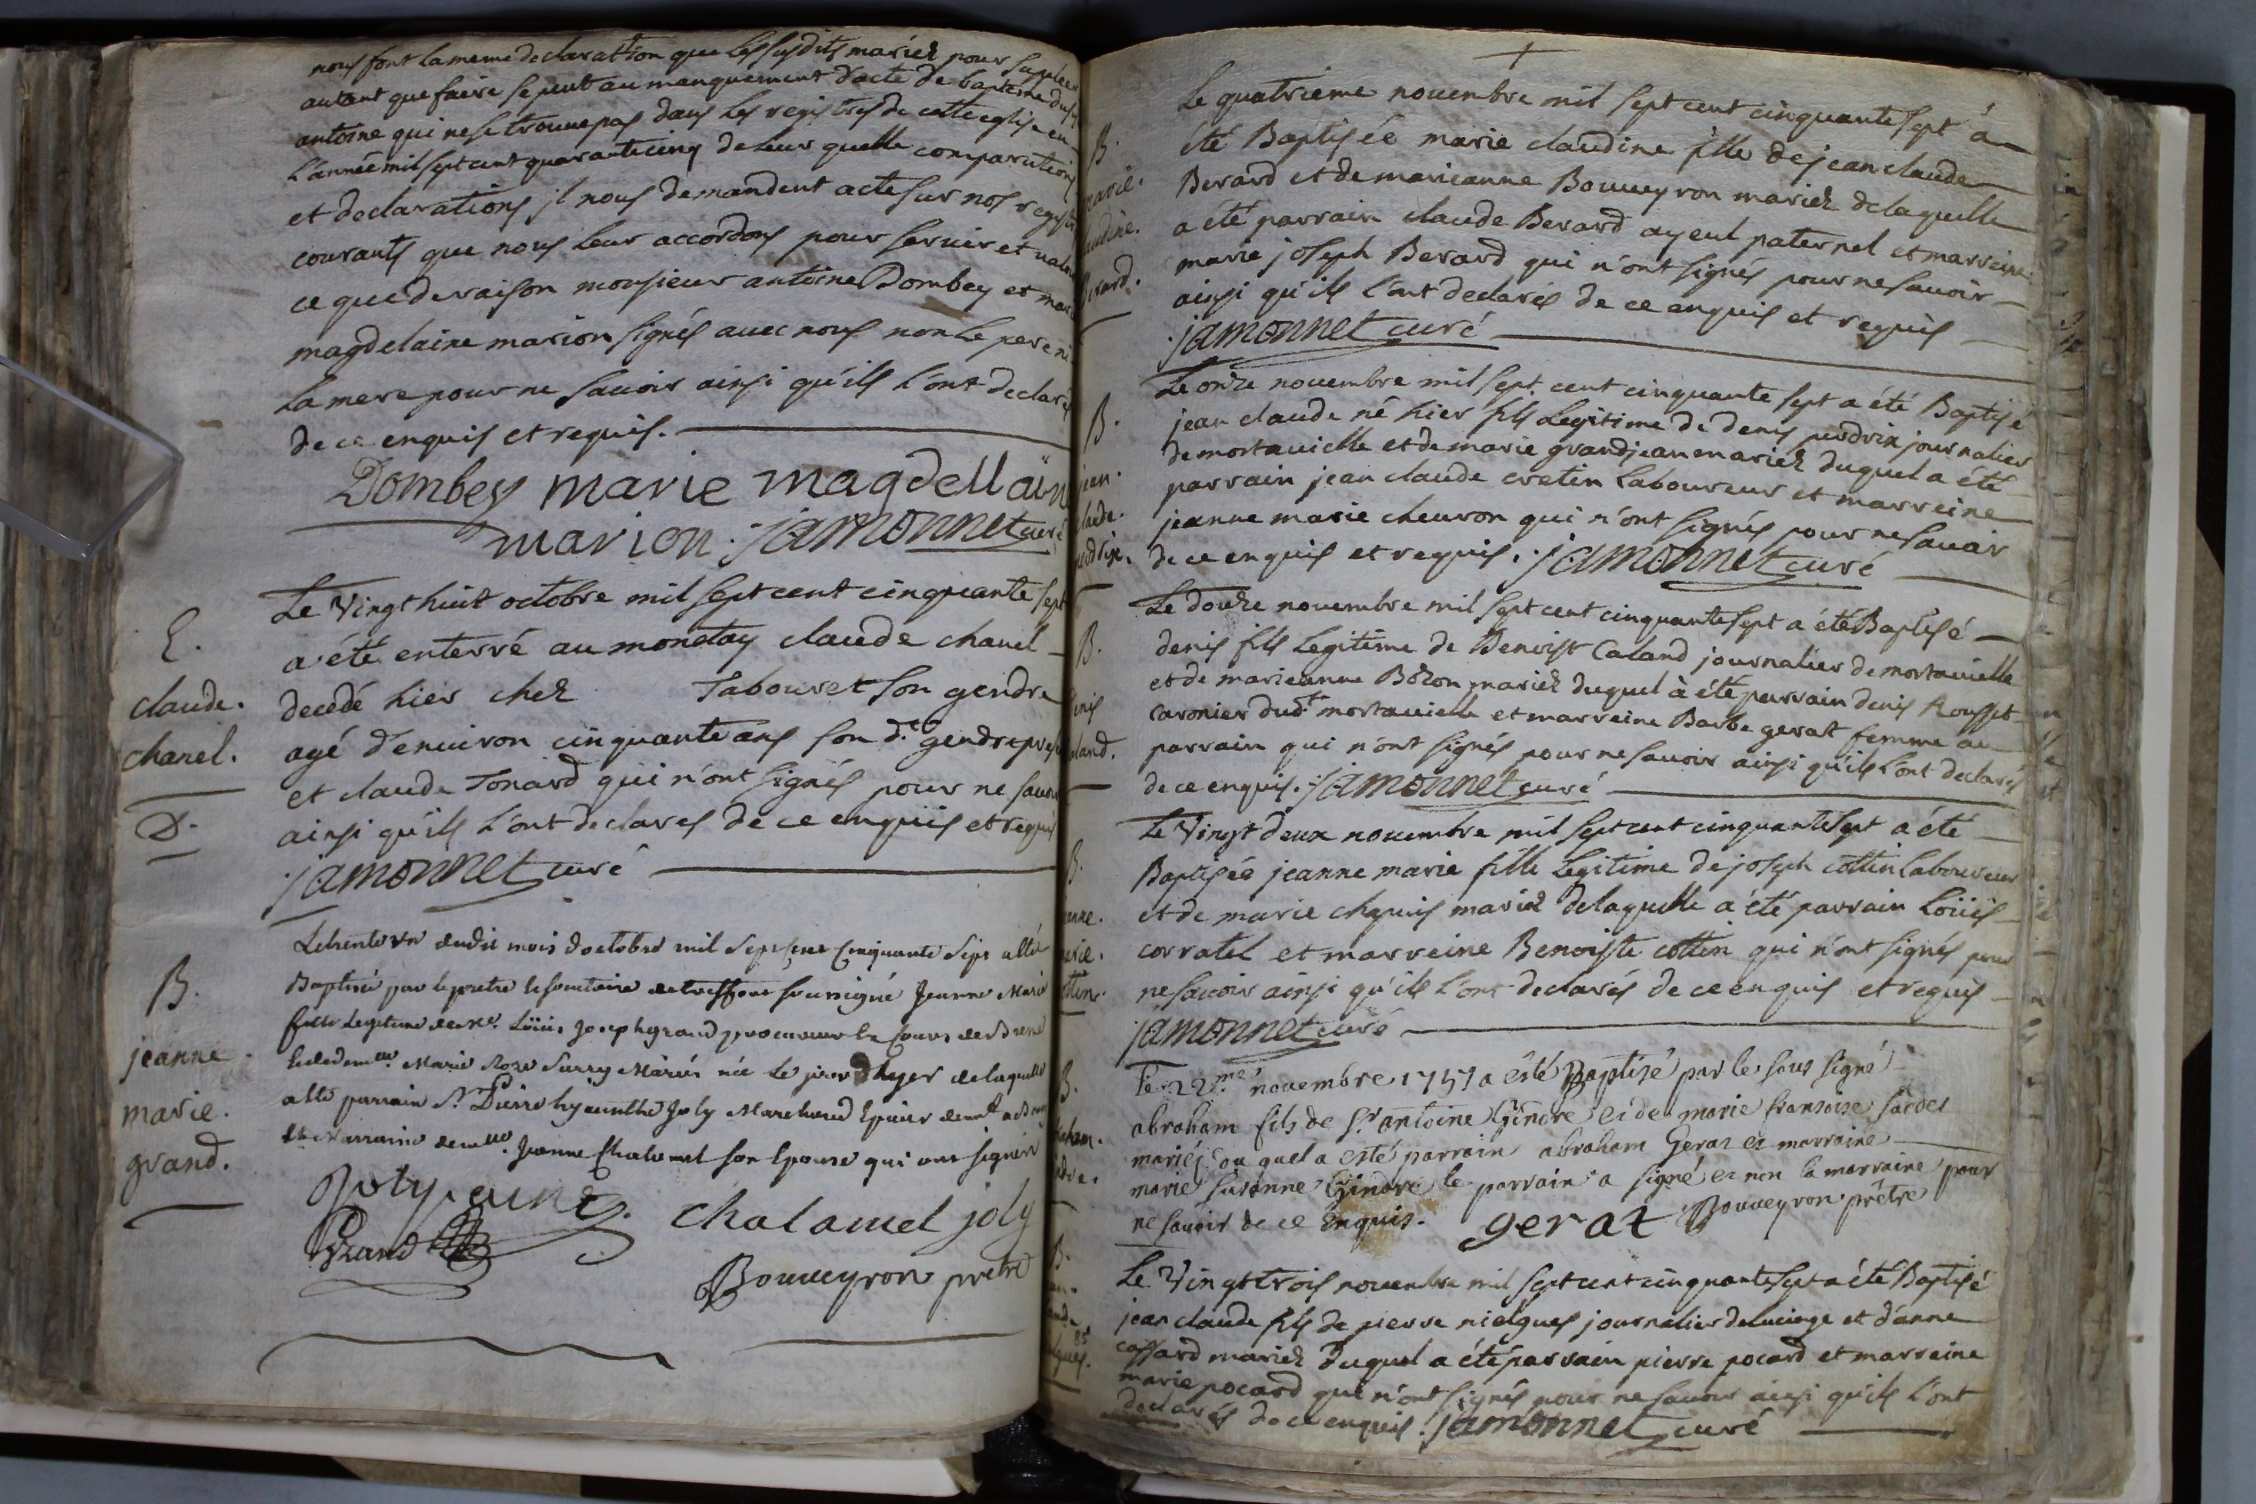 nous font la meme declaration que les susdits mariez pour supleer
autant que faire se peut au manquement d'acte de bapteme dudit
antoine qui ne se trouve pas dans les registres de cette eglise en
l'année mil sept cent quarante cinq de leur quelle comparution
et declarations jl nous demandent acte sur nos registres
courants que nous leur accordons pour servir et valoir
ce que de raison monsieur antoine Dombey et marie
magdelaine marion signés avec nous non le pere ni
la mere pour ne savoir ainsi qu'ils l'ont declarés
de ce enquis et requis.
Dombey marie magdellaine
marion jamonnet curé
E.
claude.
chanel.
D.
Le Vingt huit octobre mil sept cent cinquante sept
a été enterré au monetay claude chanel
decedé hier chez Tabouret son gendre
agé d'environ cinquante ans son d.t gendre present
et claude Tonard qui n'ont signés pour ne savoir
ainsi qu'ils l'ont declarés de ce enquis et requis
jamonnet curé
B.
jeanne.
marie.
grand.
Le trente un dudit mois d'octobre mil sept cent cinquante sept a été
Baptisée par le pretre societaire de treffort soussigné Jeanne Marie
fille legitime de Me. Loüis Joseph grand procureur
et de dem.lle Marie Roze Surry Mariés née le jour d'hyer de laquelle
a été parrain Sr. Pierre hyacinthe Joly Marchand Epicier
et Marraine dem.lle Jeanne Chalamel son Epouse qui ont signés
Joly jeune. chalamel joly
Grand
Bouveyron pretre
B.
marie.
claudine.
Berard.
Le quatrieme novembre mil sept cent cinquante sept à
été Baptisée marie claudine fille de jean claude
Berard et de marieanne Bouveyron mariez de laquelle
a été parrain claude Berard ayeul paternel et marreine
marie joseph Berard qui n'ont signés pour ne savoir
ainsi qu'ils l'ont declarés de ce enquis et requis
jamonnet curé
B.
jean.
claude.
perdrix.
Le onze novembre mil sept cent cinquante sept a été Baptisé
jean claude né hier fils legitime de denis perdrix journalier
de mortavielle et de marie grandjean mariez duquel a été
parrain jean claude cretin laboureur et marreine
jeanne marie chevron qui n'ont signés pour ne savoir
de ce enquis et requis. jamonnet curé
B.
denis
caland.
Le douze novembre mil sept cent cinquante sept a été Baptisé
denis fils legitime de Benoist Caland journalier de mortavielle
et de marieanne Bozon mariez duquel à été parrain denis Rousset
caronier dud.t mortavielle et marreine Barbe gerat femme au
parrain qui n'ont signés pour ne savoir ainsi qu'ils l'ont declarés
de ce enquis. jamonnet curé
B.
jeanne.
marie.
cottin.
Le Vingt deux novembre mil sept cent cinquante sept a été
Baptisée jeanne marie fille legitime de joseph cottin laboureur
et de marie chapuis mariez de laquelle a été parrain Loüis
corratel et marreine Benoiste cottin qui n'ont signés pour
ne savoir ainsi qu'ils l'ont declarés de ce enquis et requis
jamonnet curé
B.
abraham.
gindre.
Le 22.me novembre 1757 a esté Baptisé par le sous signé
abraham fils de Sr antoine Gindre et de marie fransoise sardet
mariés au quel a esté parrain abraham Gerat et marraine
marie susanne Gindre le parrain a signé et non la marraine pour
ne savoir de ce enquis. gerat Bouveyron prêtre
B.
Le Vingt trois novembre mil sept cent cinquante sept a été Baptisé
jean claude fils de pierre nielques journalier de lucinge et d'anne
cassard mariez duquel a été parrain pierre pocard et marreine
marie pocard qui n'ont signés pour ne savoir ainsi qu'ils l'ont
declarés de ce enquis. jamonnet curé